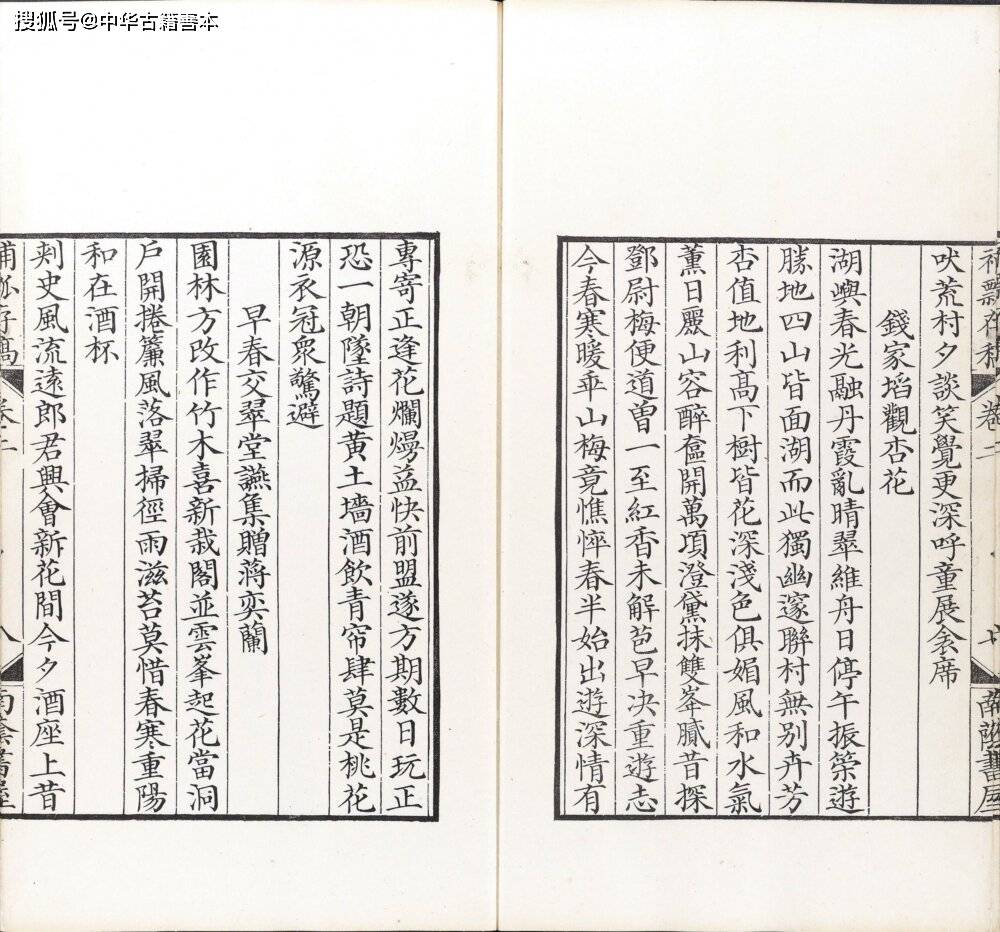 搜狐号@中华古籍善本
卷二
南蔭書屋
吠荒村夕談笑覺更深呼童展衾席
錢家㘰觀杏花
湖嶼春光融丹霞亂晴翠維舟日停午振䇿遊
勝地四山皆面湖而此獨幽邃聯村無別卉芳
杏值地利高下樹皆花深淺色俱媚風和水氣
薰日麗山容醉奩開萬頃澄黛抹雙峯膩昔探
鄧尉梅便道曽一至紅香未解苞早决重遊志
今春寒暖乖山梅竟憔悴春半始出遊深情有
專寄正逢花爛熳益快前盟遂方期數日玩正
恐一朝墜詩題黃土墻酒飲青帘肆莫是桃花
源衣冠衆驚避
早春交翠堂讌集贈蔣奕蘭
園林方改作竹木喜新栽閣並雲峯起花當洞
戶開捲簾風落翠掃徑雨滋苔莫惜春寒重陽
和在酒杯
剌史風流遠郎君興會新花間今夕酒座上昔
存稿
卷二
八
南蔭書屋